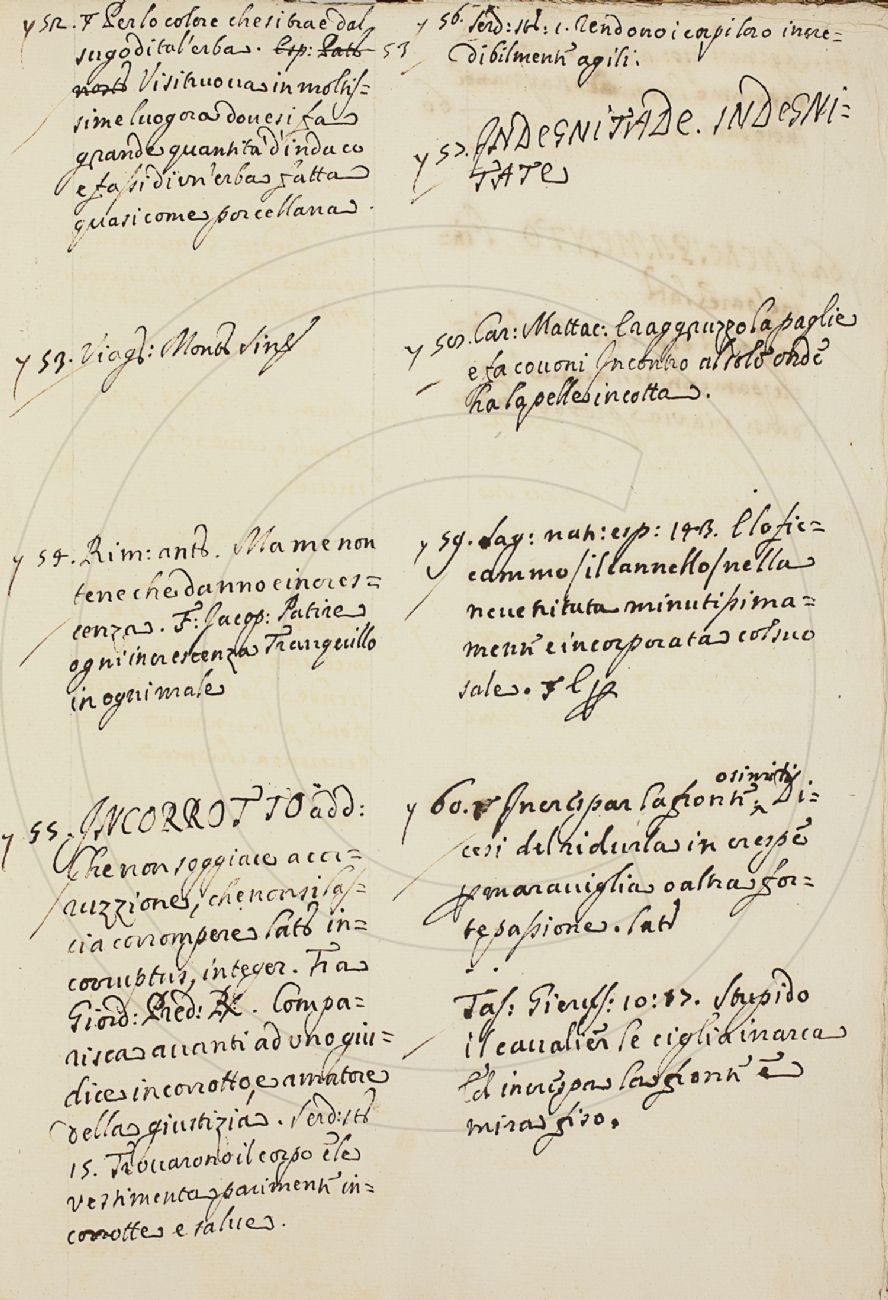 y 52. F Per lo colore che si trae dal
sugo di tal'erba. Esp: Patr
Nost Vi si truova in moltis=
sime luogora dove si fa
grande quantità d'indaco
e fassi di un'erba fatta
quasi come porcellana.
y 53. Viagg: Mont Sin
y 54. Rim: ant. Ma me non
tene che danno e incres=
cenza. F: Jacop: Patire
ogni increscenza Tranquillo
in ogni male
y 55. INCORROTTO add:
Che non soggiace a cor=
ruzzione, che non si las=
cia corrompere lat in=
corruptus, integer. Fra
Giord: Pred: R. Compa=
risca avanti ad uno giu=
dice incorrotto e amatore
della giustizia. Serd: st
15. Trovarono il corpo e le
vestimenta parimente in=
corrotte e salve.
53
y 56. Serd: st: 1. Rendono i corpi loro incre=
dibilmente agili.
y 57. INDEGNITADE. INDEGNI=
TATE
y 58. Car: Mattac: E raggruzzola paglie
e fa covoni Incontro al sole onde
ha la pelle incotta.
y 59. Sag: nat: esp: 143. E lo fic=
cammo (il cannello) nella
neve tritata minutissima=
mente e incorporata col suo
sale. F E
y 60. Increspar la fronte, o simili
Di=
cesi del ridurla in crespe
p maraviglia o altra for=
te passione. lat
Tas: Gierus: 10: 87. Stupido
il cavalier le ciglia inarca
Ed increspa la fronte e
mira fiso.